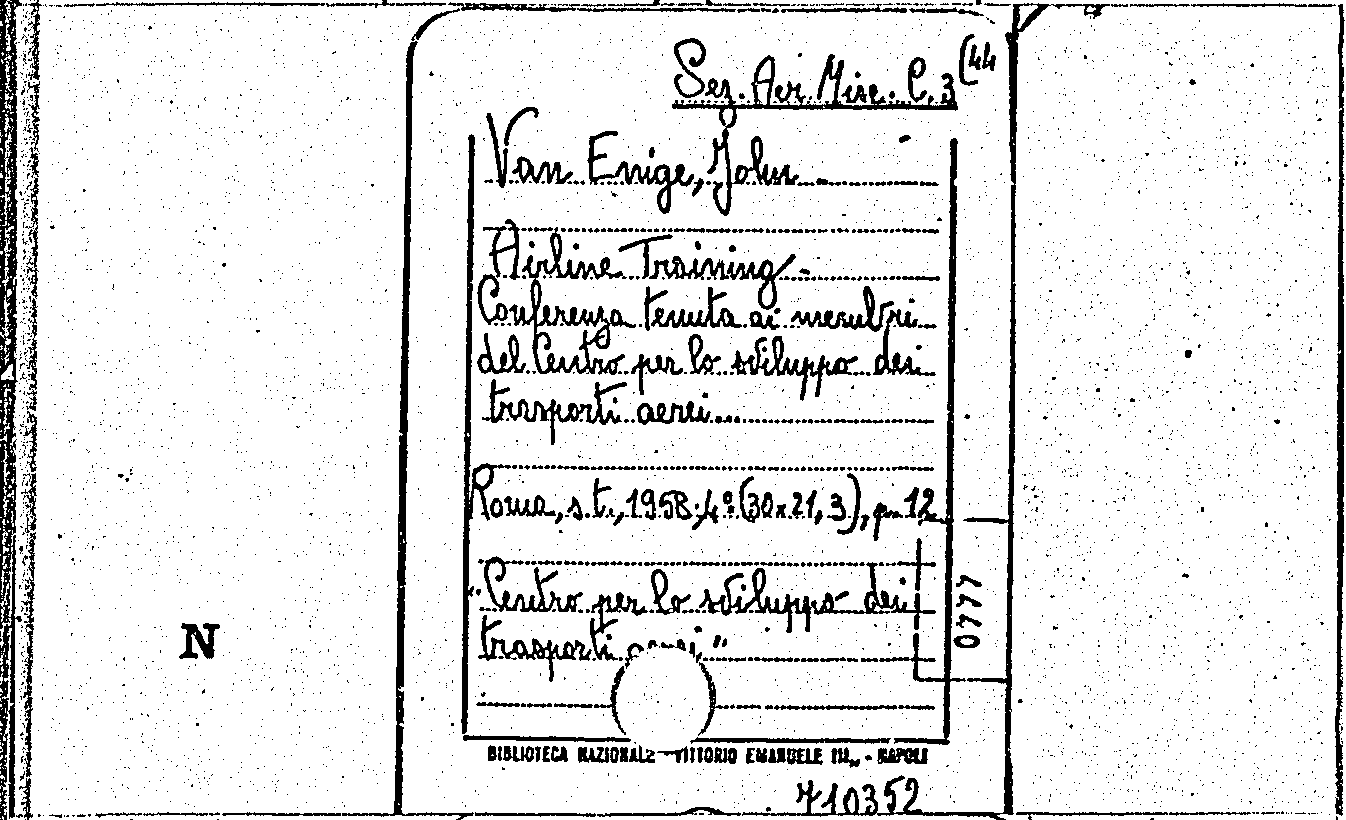 Sez. Aer. Misc. C. 3 (44
Van Enige, John -
Airline Training -
Conferenza tenuta ai membri
del Centro per lo sviluppo dei
trasporti aerei...
Roma, s.t., 1958; 4º (30x21,3), p. 12
"Centro per lo sviluppo dei
trasporti aerei"
0777
N
BIBLIOTECA NAZIONALE VITTORIO EMANUELE III" - NAPOLI
710352